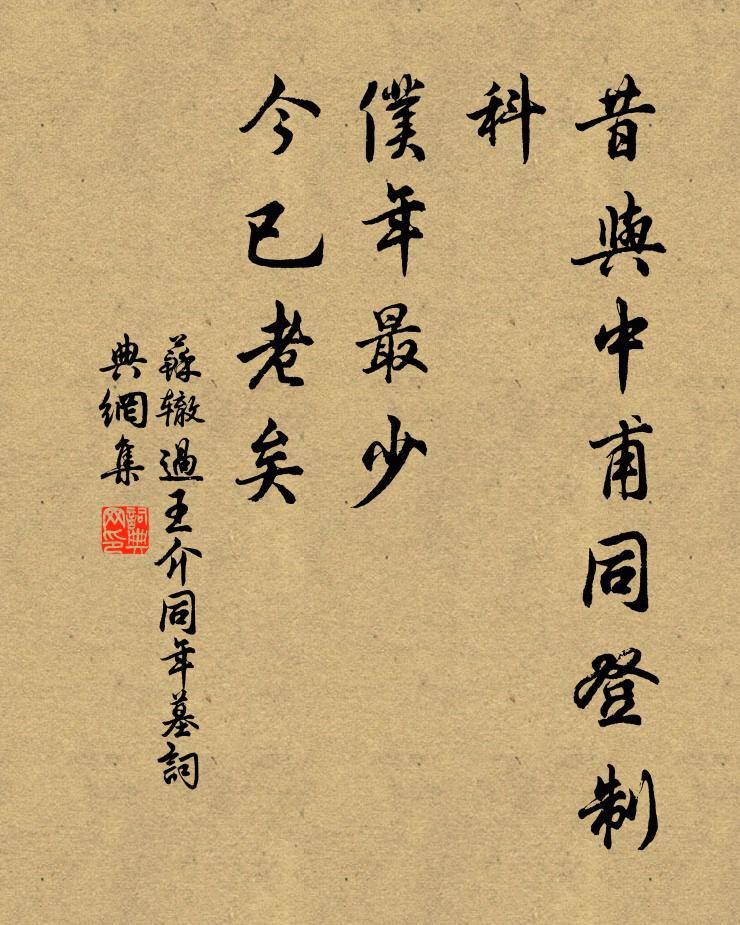 昔與中甫同登制
科
僕年最少
今已老矣
蘇辙過王介同年墓詞
典網集
詞典
网印